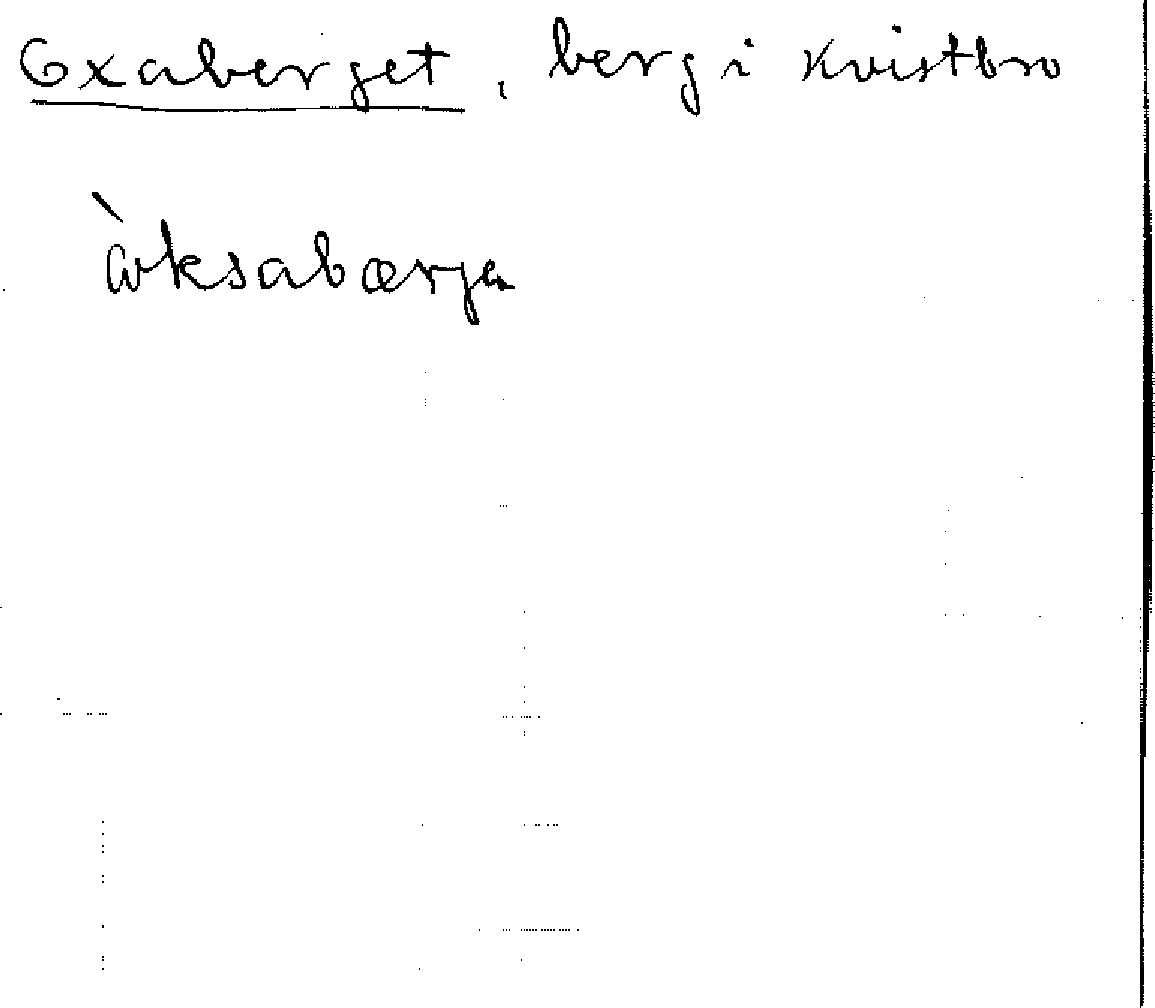 Oxaberget, berg i Kvistbro
àksabærje